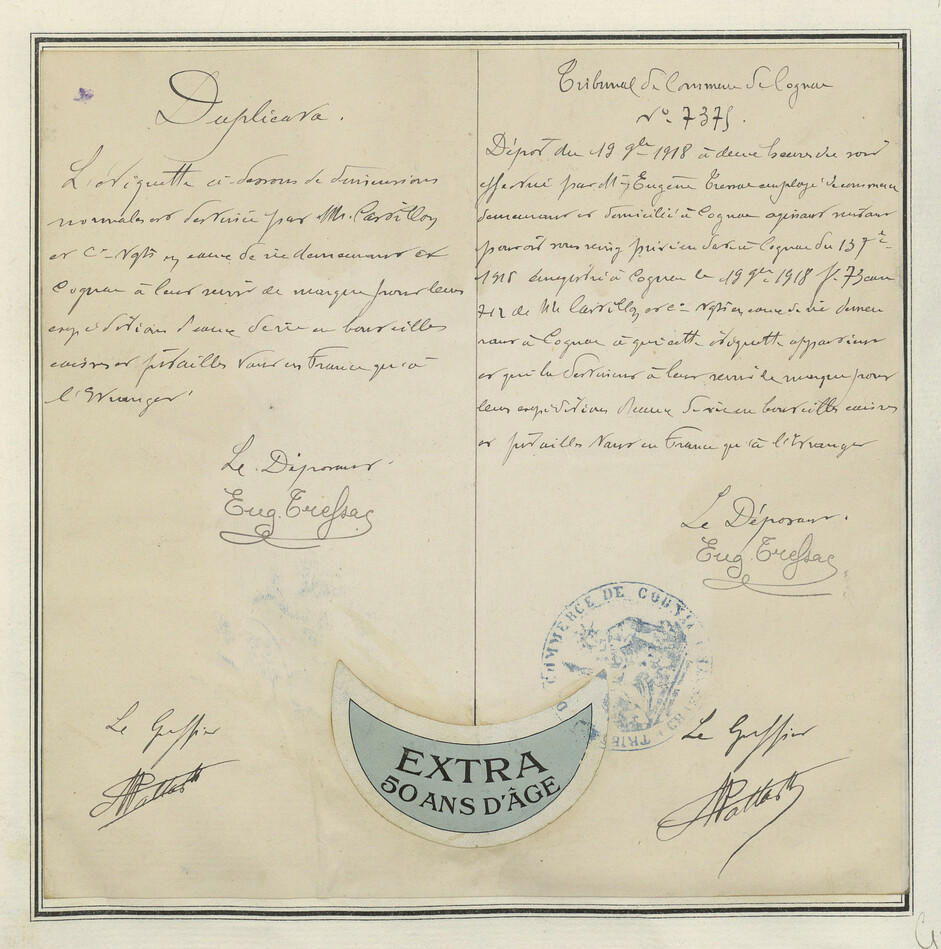 Duplicata.
L'étiquette ci-dessous de dimensions
normales est destinée par MM. Castillon
et Cie Ngts en eaux de vie demeurant et
Cognac à leur servir de marque pour leurs
expéditions d'eaux de vie en bouteilles
caisses et futailles tant en France qu'à
l'Etranger
Le Déposant.
Eug. Tressac
Le Greffier
Tribunal de Commerce de Cognac
No. 7375.
Dépôt du 19 9bre 1918 à deux heures du soir
effectué par M. Eugène Tressac employé de commerce
demeurant et domicilié à Cognac agissant
pouvoir sous seing privé en date à Cognac du 13 7bre
1918 enregistré à Cognac le 19 9bre 1918 fo. 73 case
712 de MM Castillon et Cie Ngts en eaux de vie demeu
rant à Cognac à qui cette étiquette appartient
et qui la destinent à leur servir de marque pour
leurs expéditions d'eaux de vie en bouteilles caisses
et futailles tant en France qu'à l'étranger
Le Déposant.
Eug. Tressac
COMMERCE DE COGNAC
Le Greffier
EXTRA
50 ANS D'ÂGE